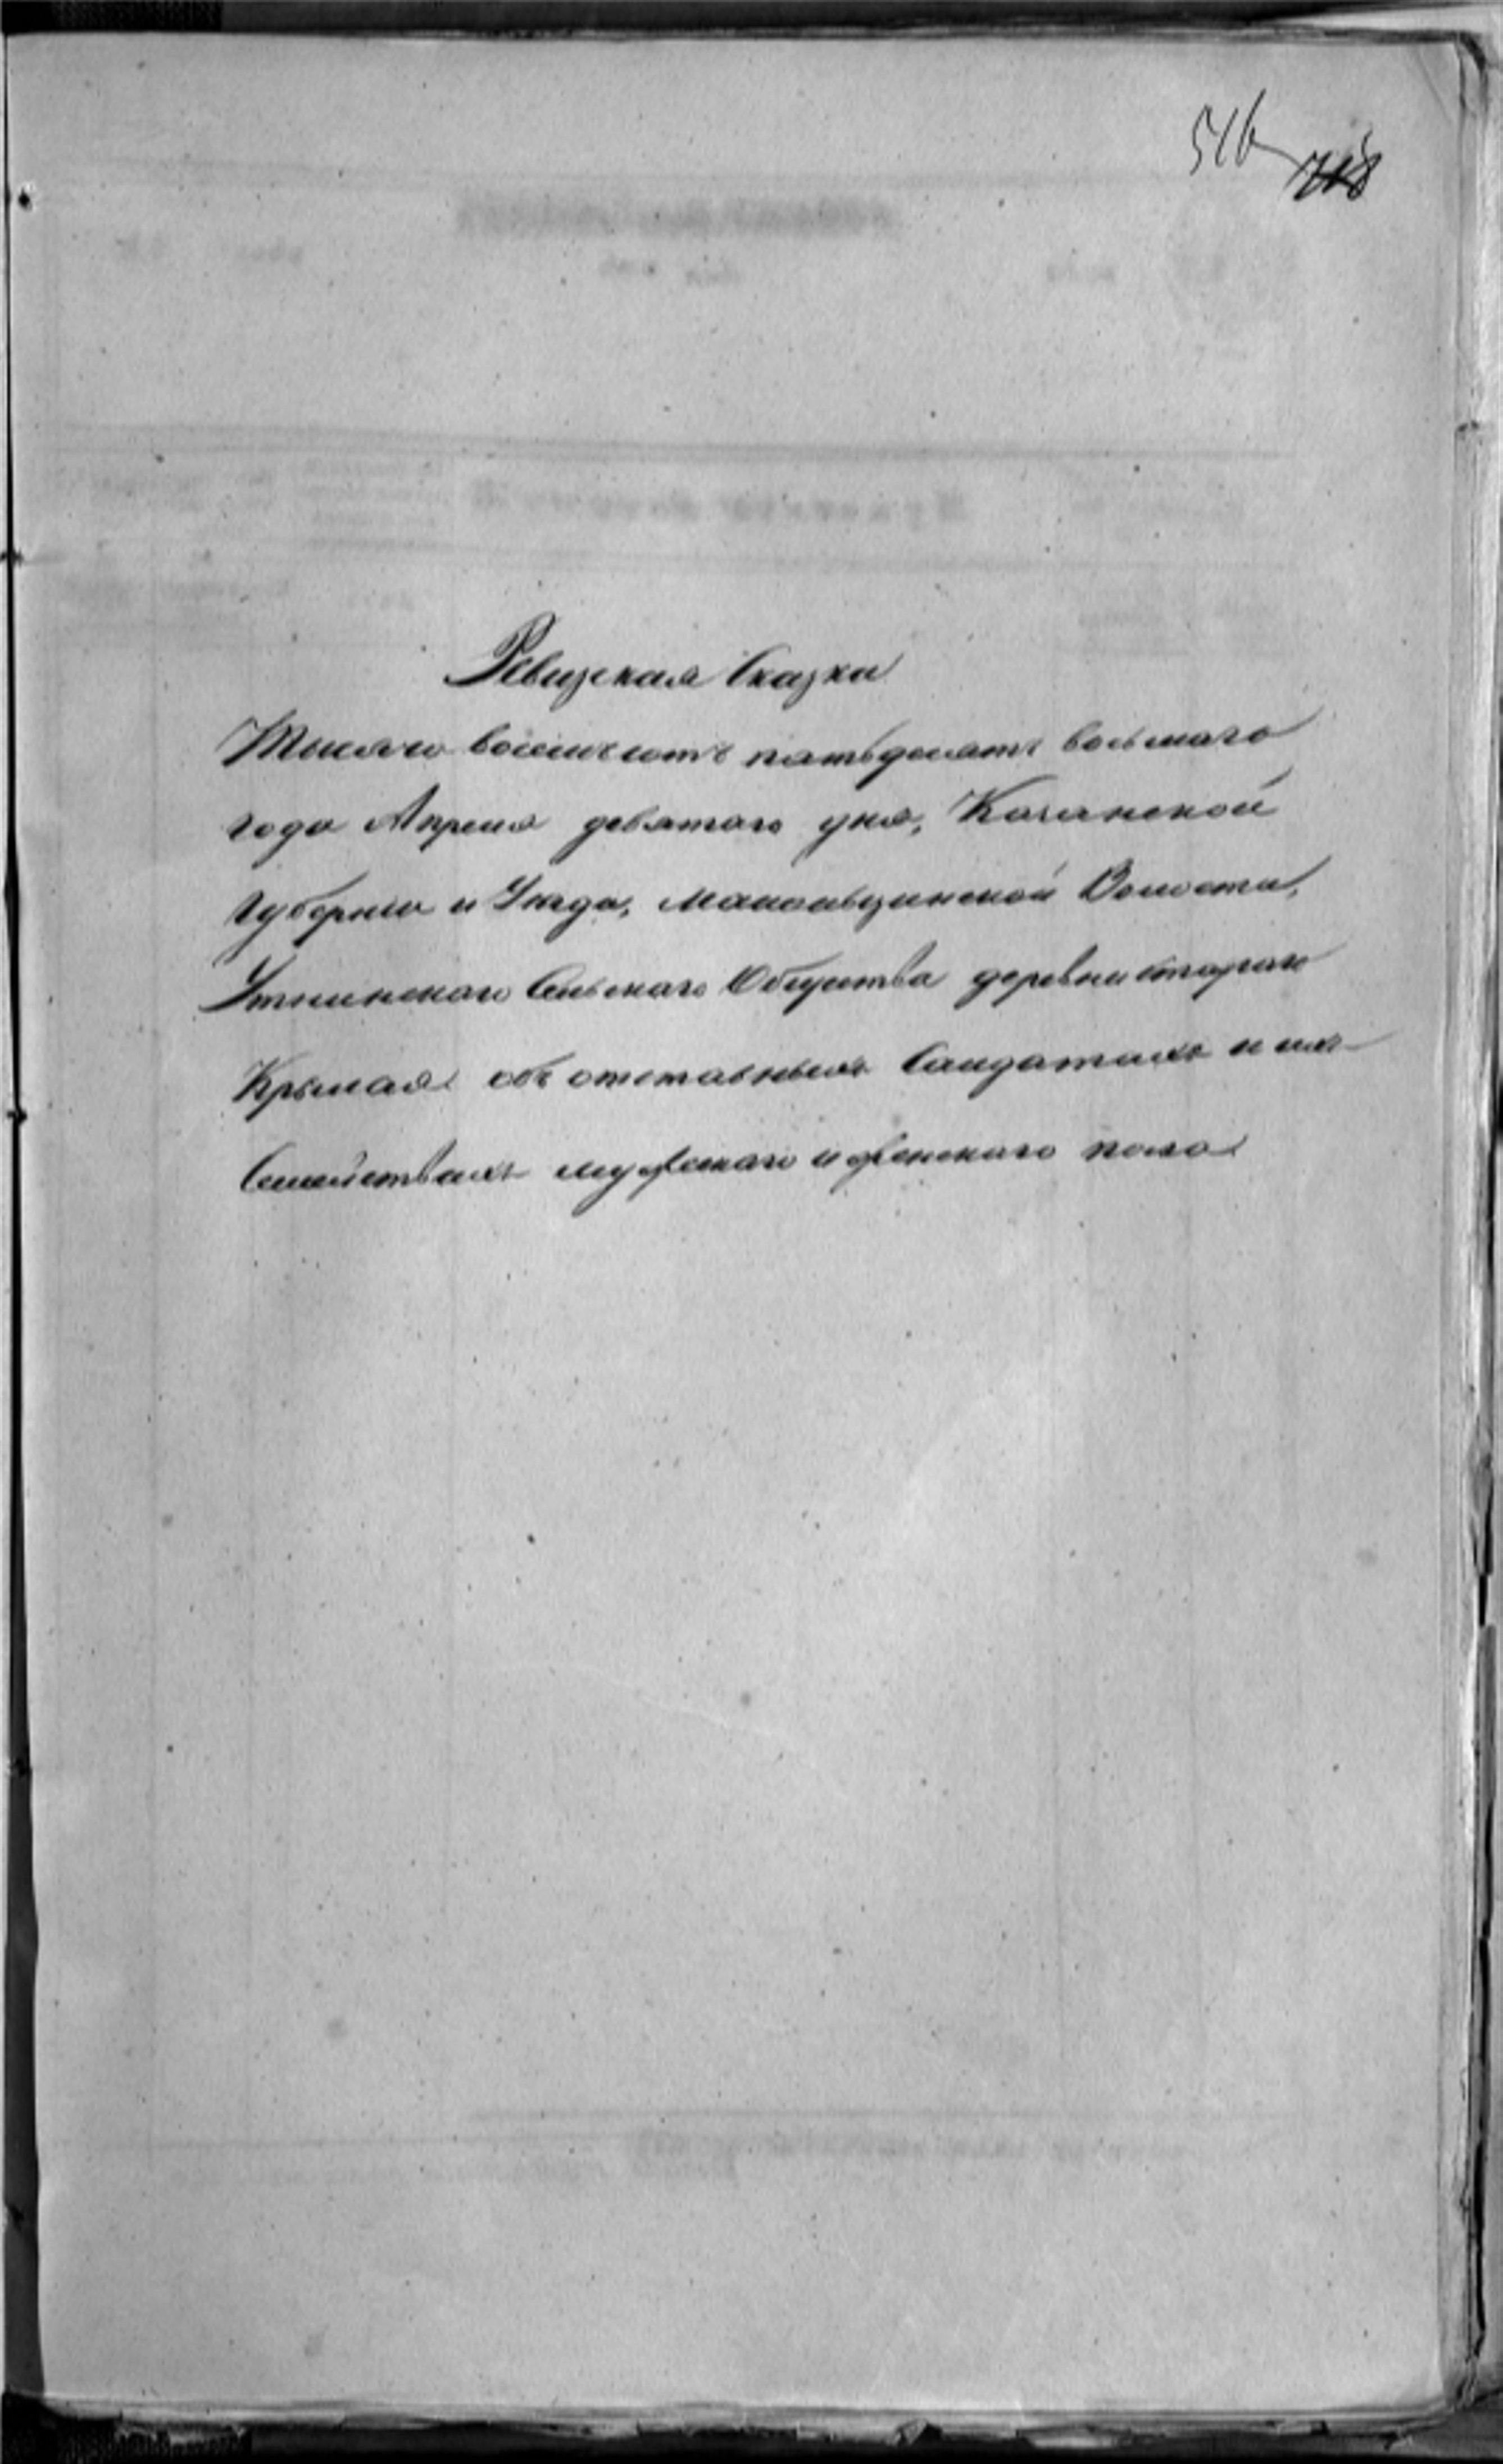 516 718
Ревизская Сказка
Тысяча восемьсотъ пятьдесятъ восьмаго
года Апреля девятаго дня, Казанской
Губернiи и Уезда, Волости,
Сельскаго Общества деревни старая
Крылая объ отставныхъ Солдатахъ и ихъ
Семействахъ мужескаго и женскаго пола